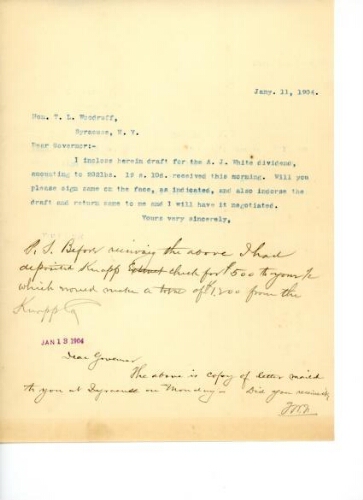 Jany. 11, 1904.
Hon. T. L. Woodruff,
Syracuse, N. Y.
Dear Governor:-
I inclose herein draft for the A. J. White dividend,
amounting to 202lbs. 1s 10d. received this morning. Will you
please sign same on the face, as indicated, and also indorse the
draft and return same to me and I will have it negotiated.
Yours very sincerely,
P. S. Before receiving the above I had
deposited Knapp Extract check for $500 to your
which would make a total of $1,200 from the
Knapp Co
JAN 13 1904
Dear Governor
The above is copy of letter mailed
to you at Syracuse on Monday - Did you receive it